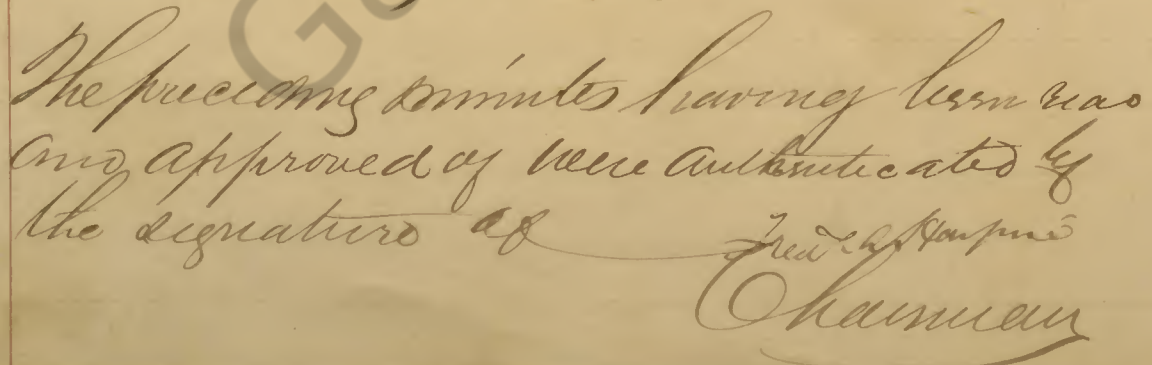 The preceding minutes having been read
and approved of were authenticated by
the signature of Fred.
Chairman